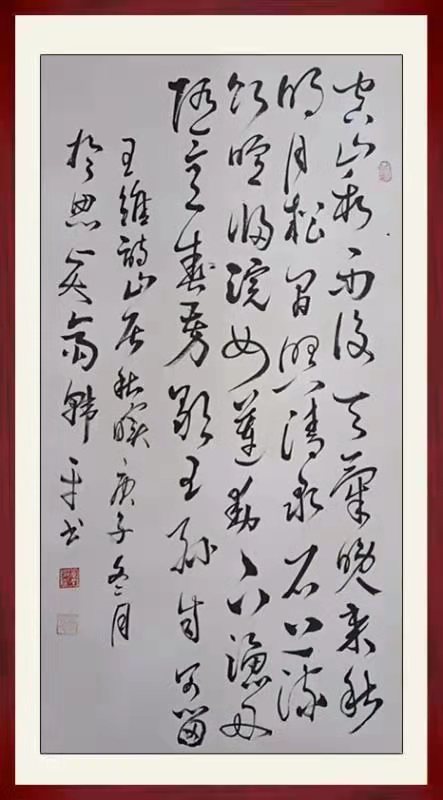 空山新雨後天氣晚來秋
明月松間照清泉石上流
竹喧歸浣女蓮動下漁舟
隨意春芳歇王孫自可留
王維詩山居秋暝庚子冬月
於思齋韓平書